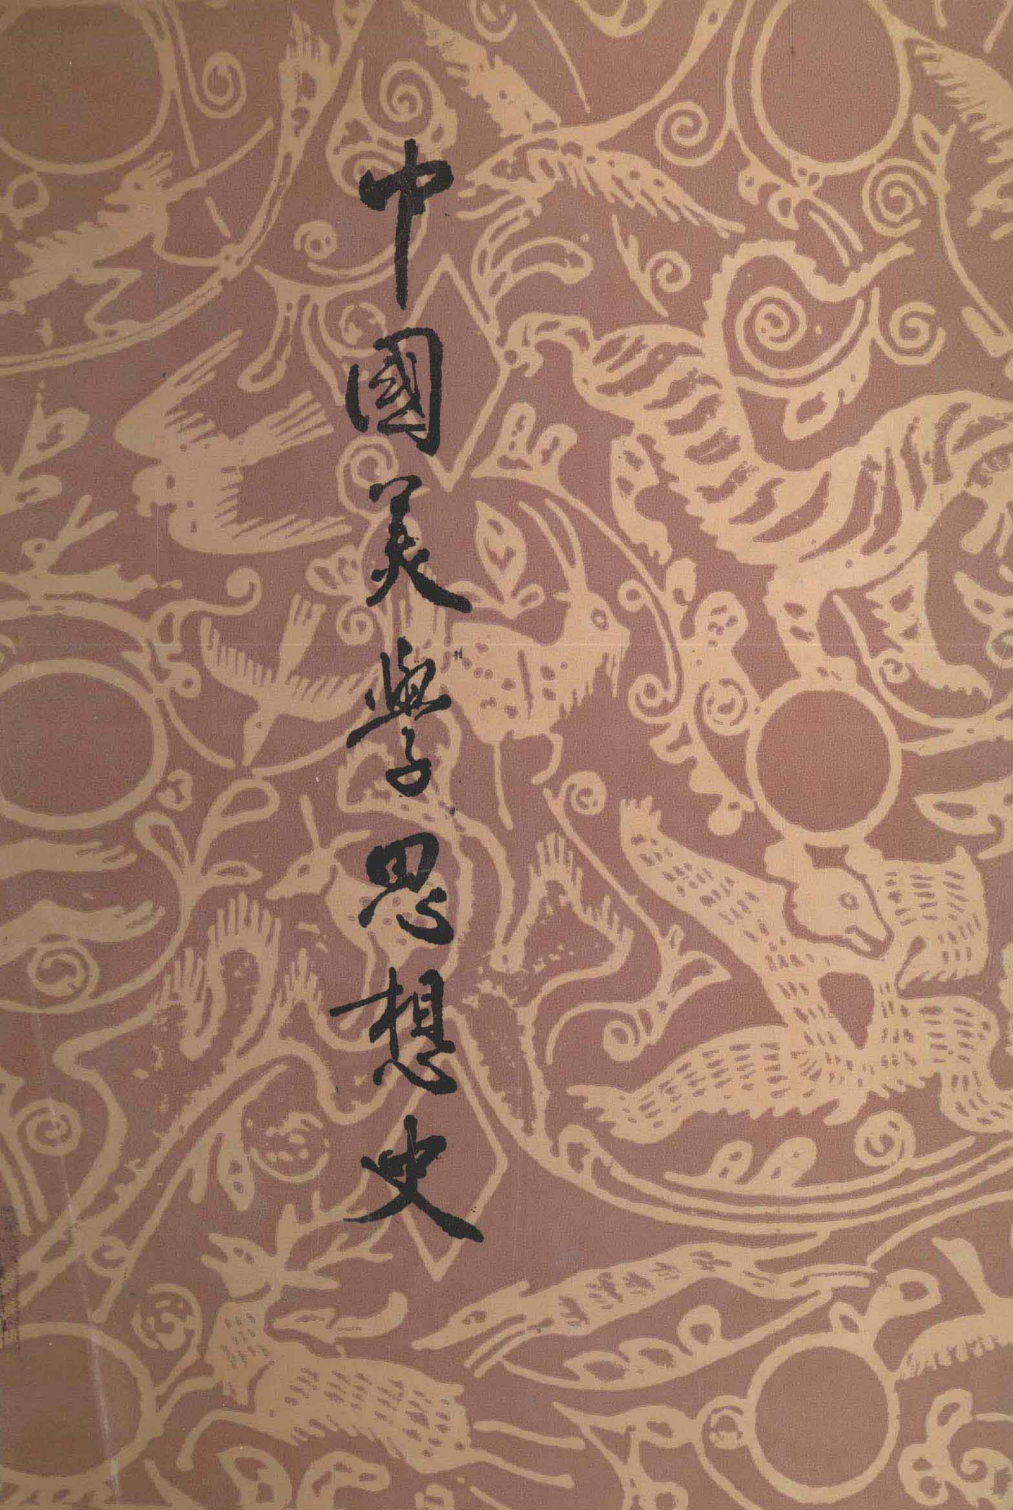 中國美學思想史